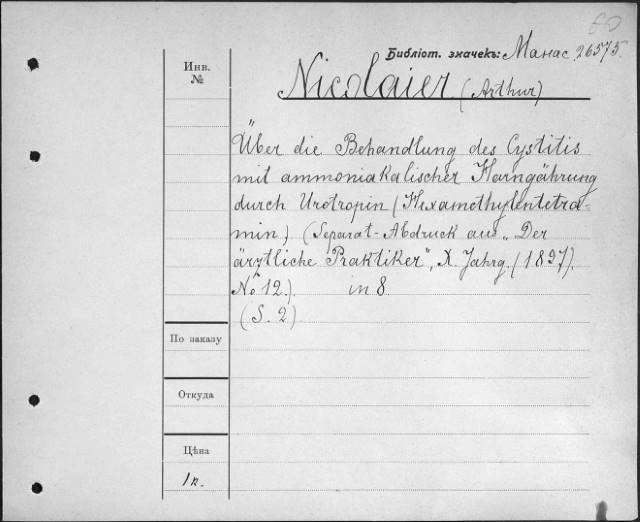 60
Библіот. значекъ: Манас. 26575.
Инв. №
Nicolaier (Arthur)
Über die Behandlung des Cystitis
mit ammoniakalischer Harngährung
durch Urotropin (Hexamethylentetra-
min) (Separat-Abdruck aus „Der
ärztliche Praktiker", X. Jahrg. (1897).
No 12.). in 8
(S. 2)
По заказу
Откуда
Цѣна
1 к.